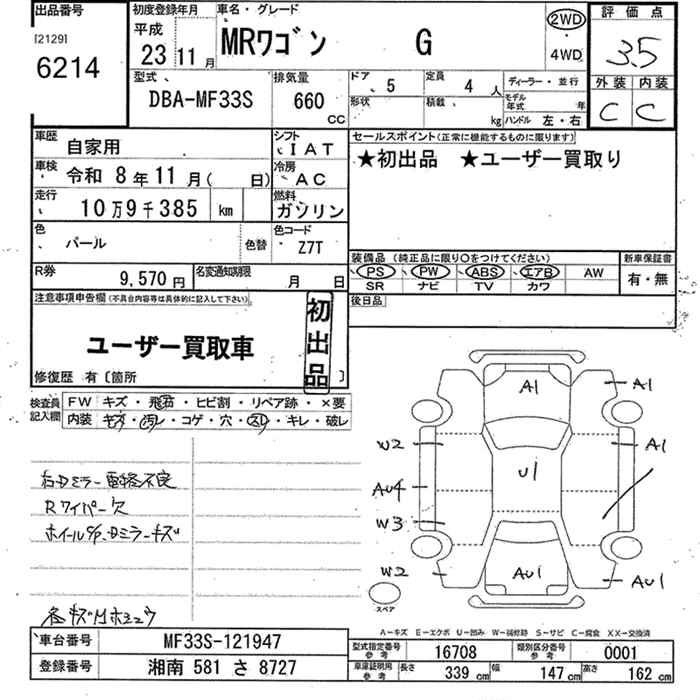 出品番号
[2129]
6214
初度登録年月
平成
23年11月
車名・グレード
MRワゴン G
2WD
・
4WD
評価点
3.5
外装 内装
C C
型式
DBA-MF33S
排気量
660
CC
ドア 5
定員 4人
形状
積載 kg
ディーラー・並行
モデル年式 年
ハンドル 左・右
車歴 自家用
シフト IAT
車検 令和 8年11月( 日)
冷房 AC
走行 10万9千385 km
燃料 ガソリン
色 パール 色替
色コード Z7T
R券 9,570円
名変通知期限 月 日
セールスポイント(正常に機能するものに限ります)
★初出品 ★ユーザー買取り
装備品 (純正品に限り○をつけてください)
PS PW ABS エアB AW
SR ナビ TV カワ
新車保証書
有・無
後日品
注意事項申告欄(不具合内容等は具体的に記入して下さい)
ユーザー買取車
初出品
修復歴 有〔箇所 〕
検査員記入欄
FW キズ・飛石・ヒビ割・リペア跡・×要
内装 キズ・汚レ・コゲ・穴・スレ・キレ・破レ
右Dミラー電格不良
Rワイパー欠
ホイールC/P.Dミラーキズ
各キズ
A1 A1
W2 A1
U1
AU4
W3
W2 AU1 AU1
スペア
A-キズ E-エクボ U-凹み W-補修跡 S-サビ C-腐食 XX-交換済
車台番号 MF33S-121947
登録番号 湘南 581 さ 8727
型式指定番号 参考 16708
類別区分番号 参考 0001
車庫証明用 参考 長さ 339 cm 幅 147 cm 高さ 162 cm